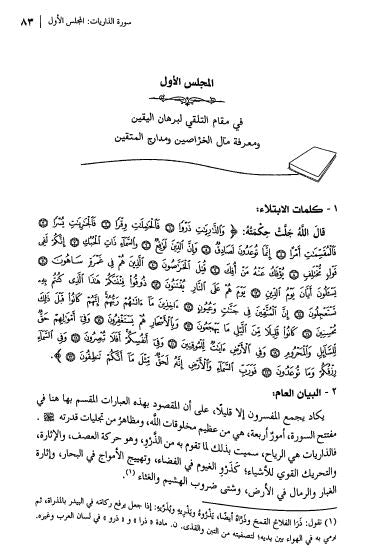 سورة الذاريات: المجلس الأول | ٨٣
المجلس الأول
في مقام التلقي لبرهان اليقين
ومعرفة مآل الخرّاصين ومدارج المتقين
١ - كلمات الابتلاء:
قال اللهُ جَلَّتْ حِكْمَتُهُ: ﴿ وَالذَّارِيَاتِ ذَرْوًا ۝ فَالْحَامِلَاتِ وِقْرًا ۝ فَالْجَارِيَاتِ يُسْرًا
۝ فَالْمُقَسِّمَاتِ أَمْرًا ۝ إِنَّمَا تُوعَدُونَ لَصَادِقٌ ۝ وَإِنَّ الدِّينَ لَوَاقِعٌ ۝ وَالسَّمَاءِ ذَاتِ الْحُبُكِ ۝ إِنَّكُمْ لَفِي
قَوْلٍ مُخْتَلِفٍ ۝ يُؤْفَكُ عَنْهُ مَنْ أُفِكَ ۝ قُتِلَ الْخَرَّاصُونَ ۝ الَّذِينَ هُمْ فِي غَمْرَةٍ سَاهُونَ ۝
يَسْأَلُونَ أَيَّانَ يَوْمُ الدِّينِ ۝ يَوْمَ هُمْ عَلَى النَّارِ يُفْتَنُونَ ۝ ذُوقُوا فِتْنَتَكُمْ هَذَا الَّذِي كُنْتُمْ بِهِ
تَسْتَعْجِلُونَ ۝ إِنَّ الْمُتَّقِينَ فِي جَنَّاتٍ وَعُيُونٍ ۝ آخِذِينَ مَا آتَاهُمْ رَبُّهُمْ إِنَّهُمْ كَانُوا قَبْلَ ذَلِكَ
مُحْسِنِينَ ۝ كَانُوا قَلِيلًا مِنَ اللَّيْلِ مَا يَهْجَعُونَ ۝ وَبِالْأَسْحَارِ هُمْ يَسْتَغْفِرُونَ ۝ وَفِي أَمْوَالِهِمْ حَقٌّ
لِلسَّائِلِ وَالْمَحْرُومِ ۝ وَفِي الْأَرْضِ آيَاتٌ لِلْمُوقِنِينَ ۝ وَفِي أَنْفُسِكُمْ أَفَلَا تُبْصِرُونَ ۝ وَفِي السَّمَاءِ
رِزْقُكُمْ وَمَا تُوعَدُونَ ۝ فَوَرَبِّ السَّمَاءِ وَالْأَرْضِ إِنَّهُ لَحَقٌّ مِثْلَ مَا أَنَّكُمْ تَنْطِقُونَ ۝ ﴾.
٢ - البيان العام:
يكاد يجمع المفسرون إلا قليلًا، على أن المقصود بهذه العبارات المقسم بها هنا في
مفتتح السورة، أمورٌ أربعة، هي من عظيم مخلوقات الله، ومظاهرُ من تجليات قدرته ﷻ .
فالذاريات هي الرياح، سميت بذلك لما تقوم به من الذَّرْوِ، وهو حركة العصف، والإثارة،
والتحريك القوي للأشياء؛ كَذَرْوِ الغيوم في الفضاء، وتهييج الأمواج في البحار، وإثارة
الغبار والرمال في الأرض، وشتى ضروب الهشيم والغثاء (١).
(١) نقول: ذَرَا الفلاحُ القمحَ وذَرَّاهُ أيضًا، يَذْرُوهُ ويَذْرِيهِ ويُذَرِّيهِ: إذا جعل يرفع ركامته في البيدر بالمذراة، ثم
يرمي به في الهواء بين يديه؛ لتصفيته من التبن والقذى. ن. مادة « ذرا » و « ذرو » في لسان العرب وغيره.